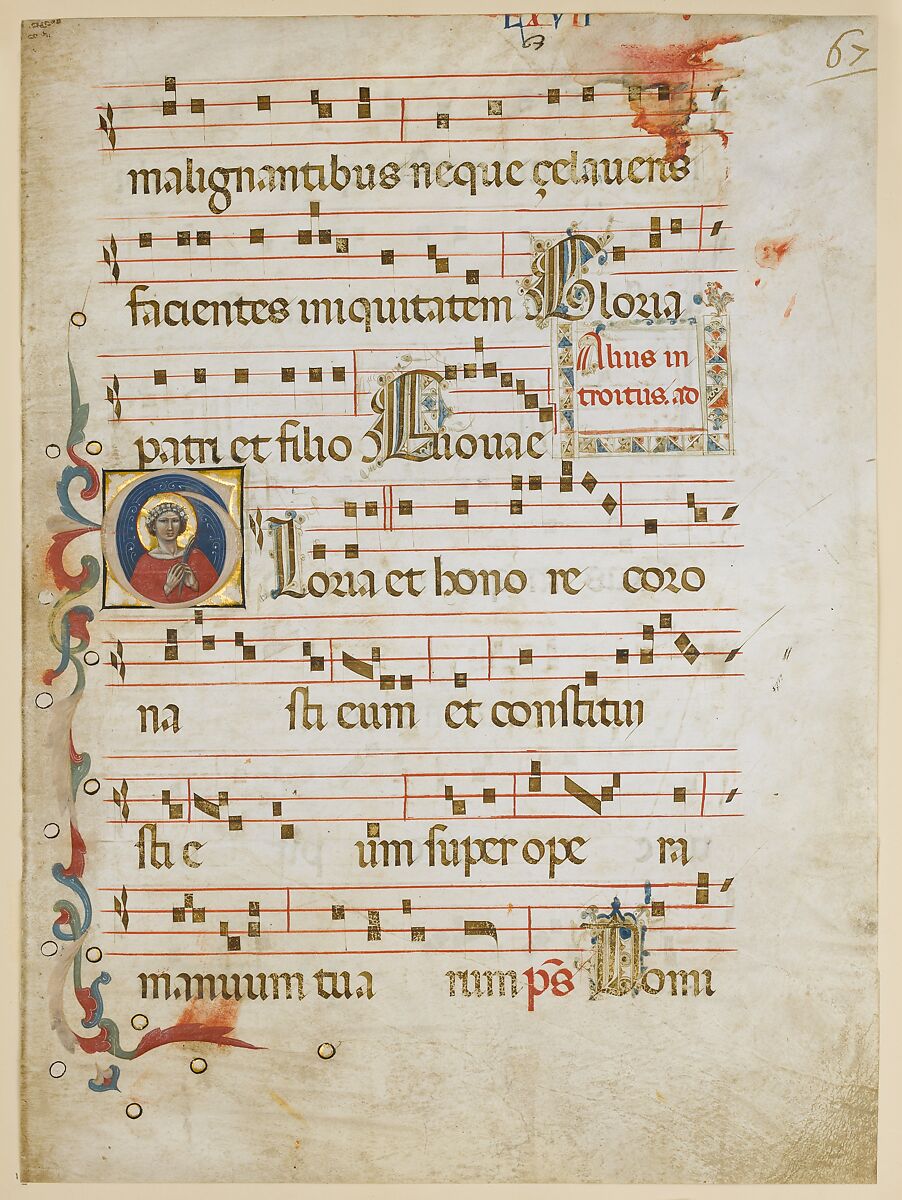 LXVII
67
67
malignantibus neque çelaveris
facientes iniquitatem Gloria
patri et filio Euouae
Alius in
troitus. ad
Gloria et hono re coro
na sti eum et constitui
sti e um super ope ra
manuum tua rum p̄s Domi